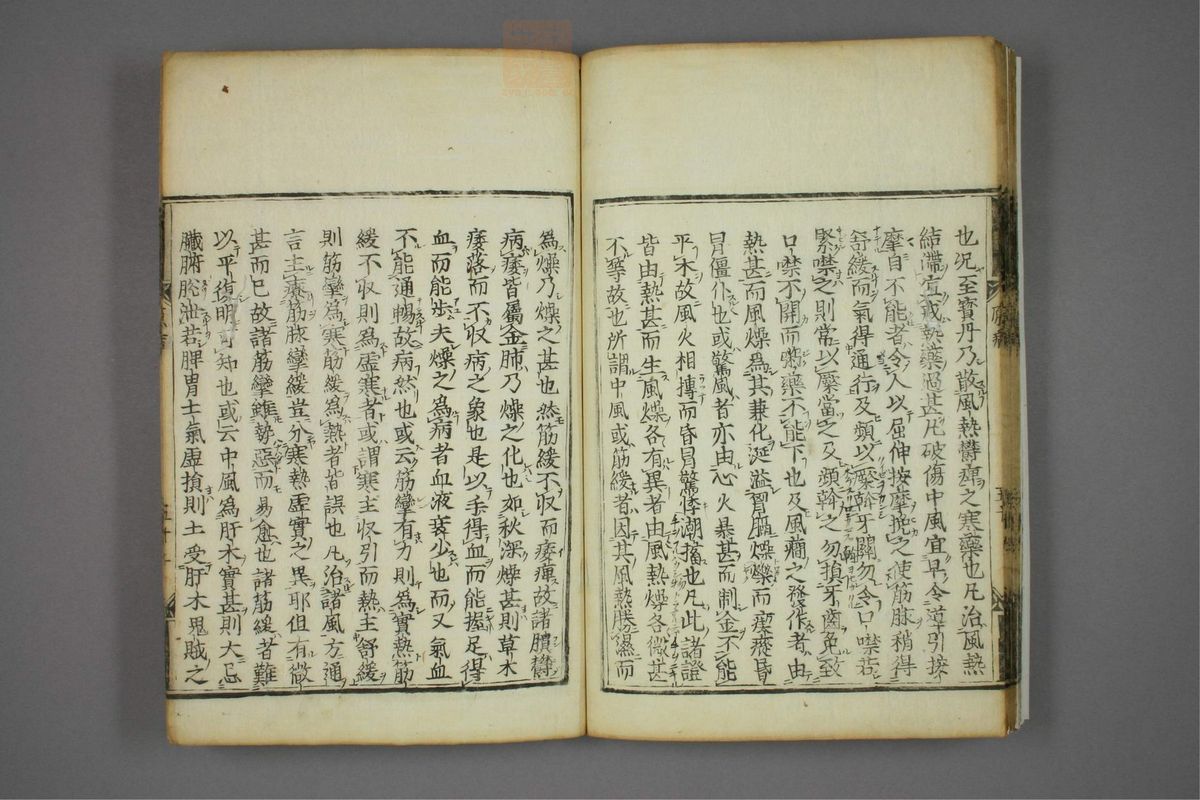 也況至寶丹乃散風熱鬱痞之寒藥也凡治風熱
結滯宜戒熱藥過甚凡破傷中風宜早令導引按
摩自不能者令人以屈伸按摩挽之使筋脉稍得
舒緩而氣得通行及頻以檗幹牙關勿令口噤若
緊噤之則常以檗當之及頻幹之勿損牙齒免致
口噤不開而粥藥不能下也及風癇之發作者由
熱甚而風燥爲其兼化涎溢胷膈燥爍而瘈瘲昏
冒僵仆也或驚風者亦由心火暴甚而制金不能
平木故風火相摶而昏冒驚悸潮搐也凡此諸證
皆由熱甚而生風燥各有異者由風熱燥各微甚
不等故也所謂中風或筋緩者因其風熱勝濕而
爲燥乃燥之甚也然筋緩不収而痿痺故諸膹鬱
病痿皆屬金肺乃燥之化也如秋深燥甚則草木
痿落而不収病之象也是以手得血而能握足得
血而能歩夫燥之爲病者血液衰少也而又氣血
不能通暢故病然也或云筋攣有力則爲實熱筋
緩不収則爲虛寒者或謂寒主収引而熱主舒緩
則筋攣爲寒筋緩爲熱者皆誤也凡治諸風方通
言主療筋脉攣緩豈分寒熱虛實之異耶但有微
甚而已故諸筋攣雖勢惡而易愈也諸筋緩者難
以平復明可知也或云中風爲肝木實甚則大忌
臟腑脱泄若脾胃土氣虛損則土受肝木鬼賊之